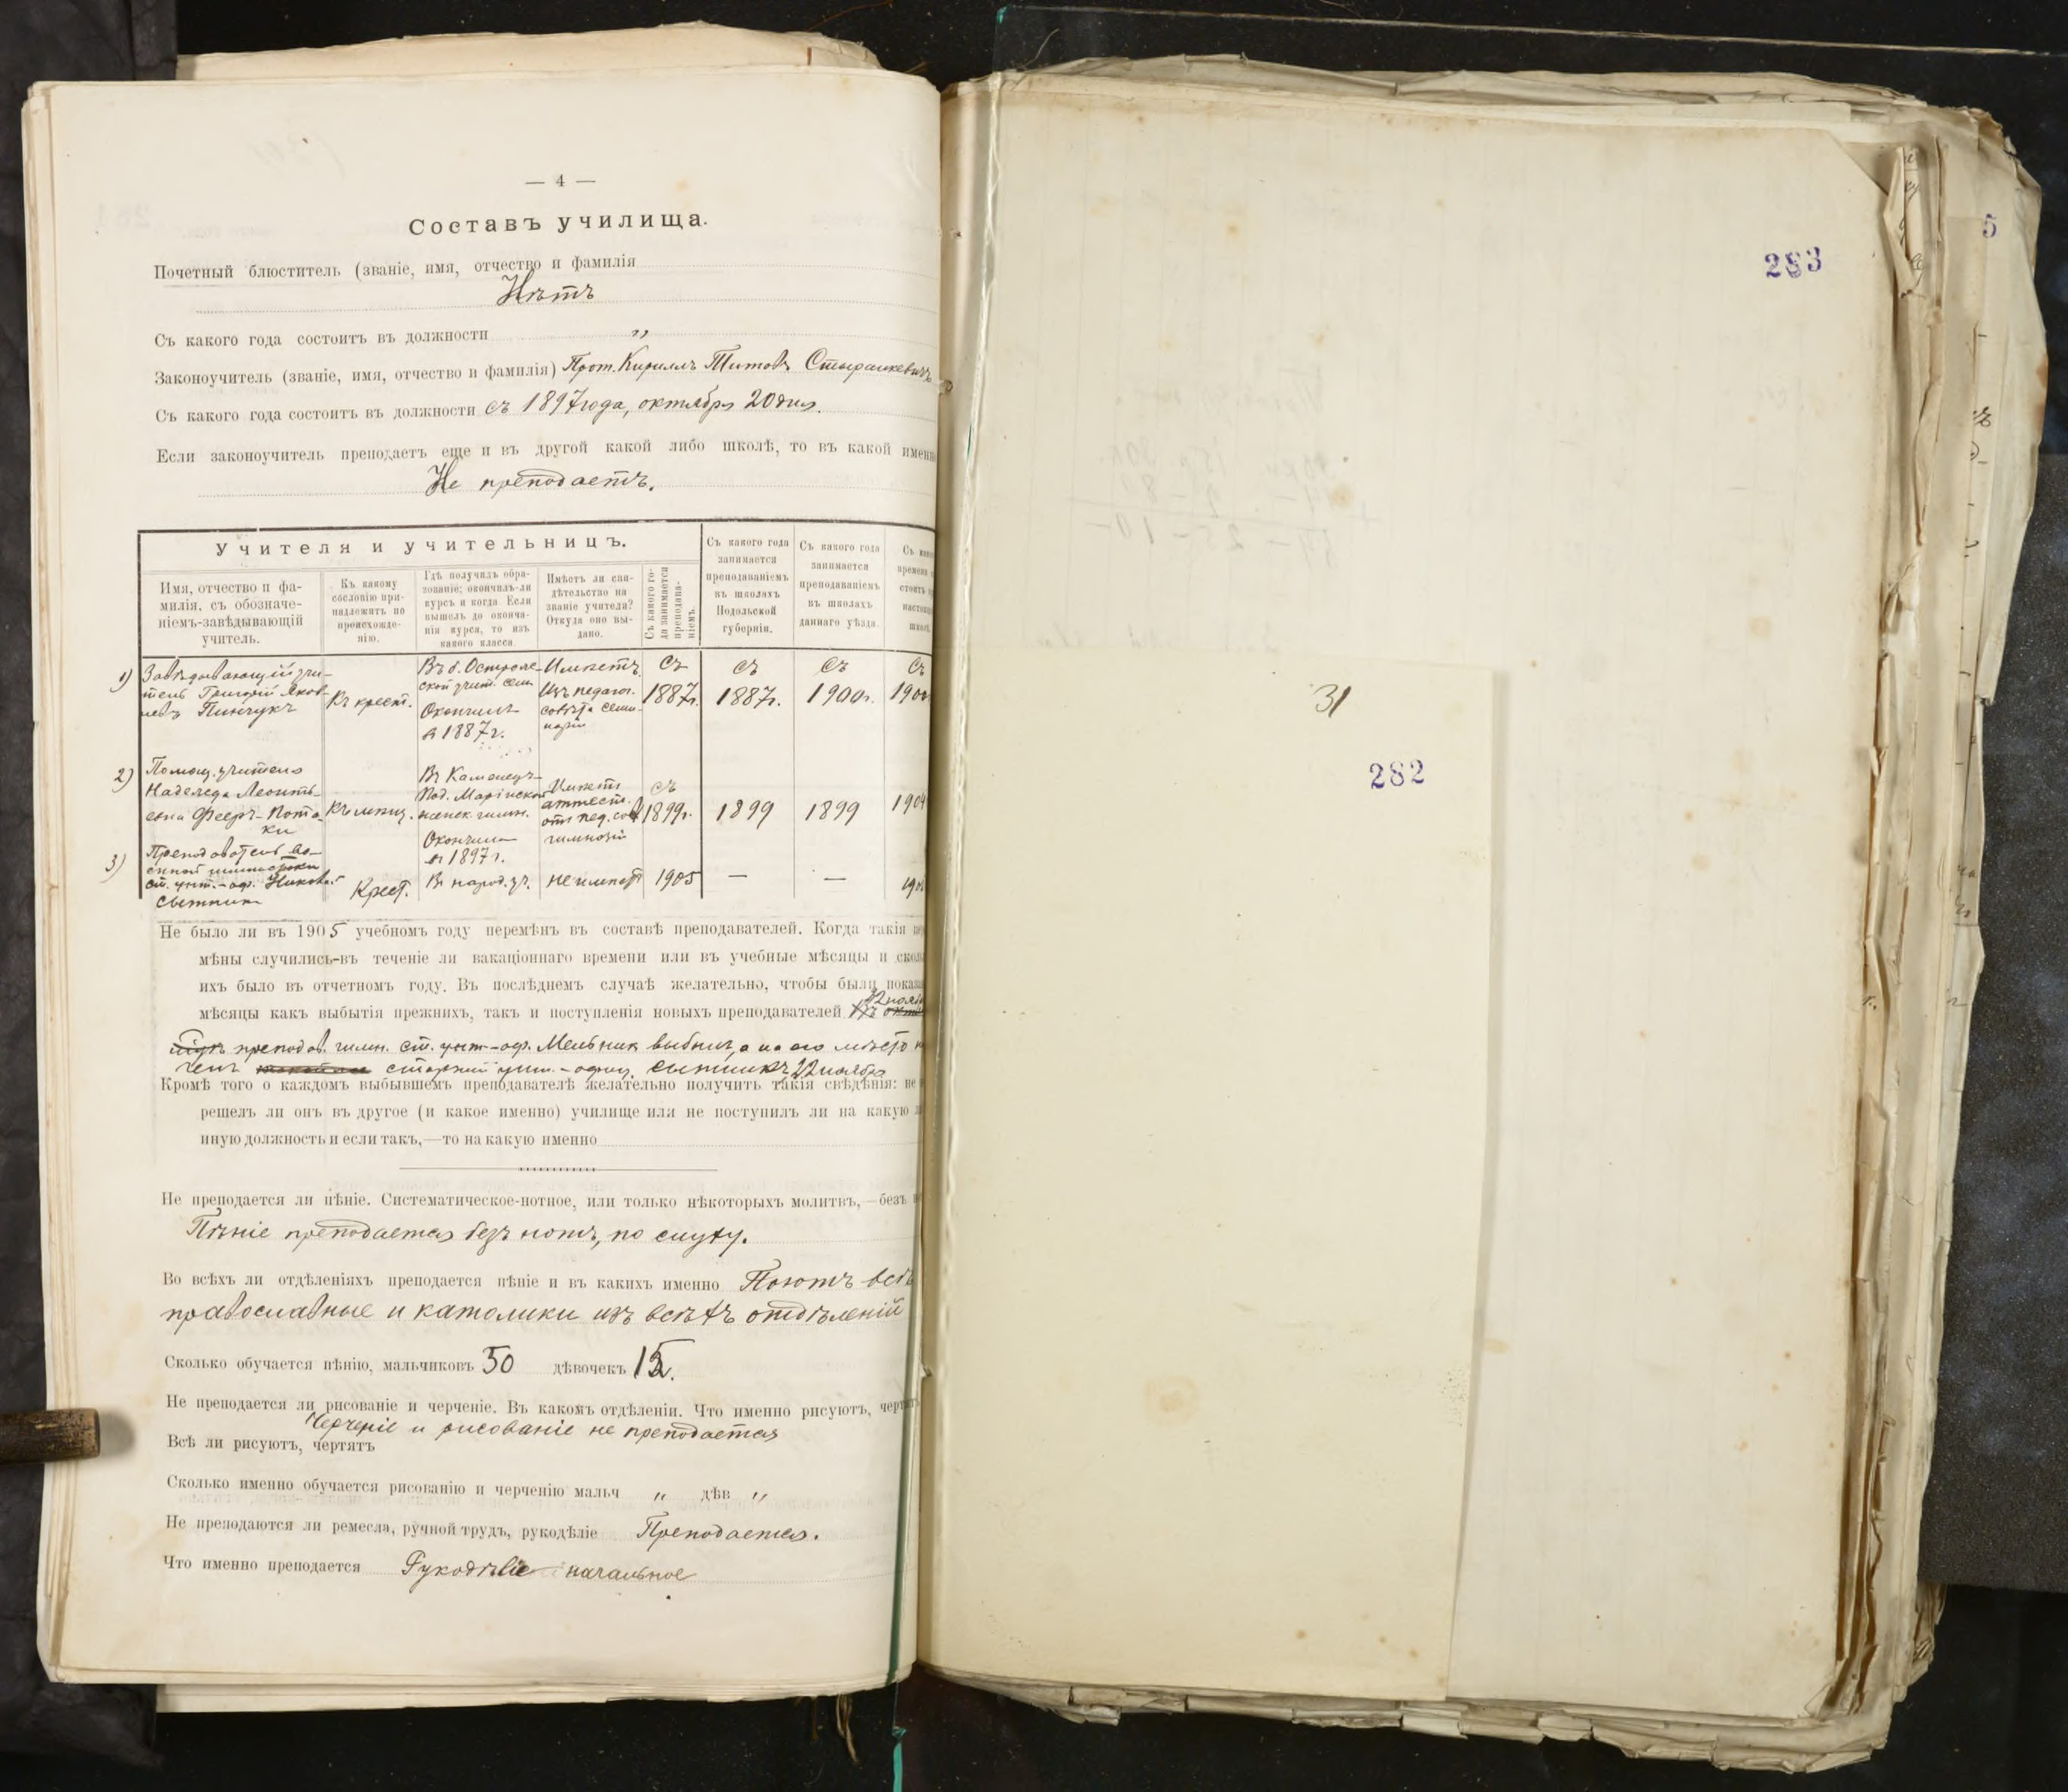 — 4 —
Составъ училища.
Почетный блюститель (званіе, имя, отчество и фамилія
Нѣтъ
Съ какого года состоитъ въ должности „
Законоучитель (званіе, имя, отчество и фамилія) Прот. Кирилъ Титовъ Стыранкевичъ
Съ какого года состоитъ въ должности съ 1897 года, октября 20 дня.
Если законоучитель преподаетъ еще и въ другой какой либо школѣ, то въ какой именно
Не преподаетъ.
Учителя и учительницъ.
Имя, отчество и фа-
милія, съ обозначе-
ніемъ-завѣдывающій
учитель.
Къ какому
сословію при-
надлежитъ по
происхожде-
нію.
Гдѣ получилъ обра-
зованіе; окончилъ-ли
курсъ и когда. Если
вышелъ до оконча-
нія курса, то изъ
какого класса.
Имѣетъ ли сви-
дѣтельство на
званіе учителя?
Откуда оно вы-
дано.
Съ какого го-
да занимается
преподава-
ніемъ.
Съ какого года
занимается
преподаваніемъ
въ школахъ
Подольской
губерніи.
Съ какого года
занимается
преподаваніемъ
въ школахъ
даннаго уѣзда.
Съ
времени
школѣ
1) Завѣдывающій учи-
тель Григорій Яков-
левъ Пинчукъ
Къ крест.
Въ б. Острож-
ской учит. сем.
Окончилъ
въ 1887 г.
Имѣетъ.
Изъ педагог.
совѣта семи-
наріи
съ
1887г.
съ
1887г.
съ
1900г.
съ
2) Помощ. учителя
Надежда Леонть-
евна Фееръ-Пота-
ки
Къ мѣщ.
Въ Каменецъ-
Под. Маріинской
женск. гимн.
Окончила
въ 1897 г.
Имѣетъ
аттест.
отъ пед. сов.
гимназіи
съ
1899г.
1899
1899
1904
3) Преподаватель во-
енной гимнастики
ст. унт.-оф.
Сытникъ
Крест.
Въ народ. уч.
не имѣетъ
1905
—
—
Не было ли въ 1905 учебномъ году перемѣнъ въ составѣ преподавателей. Когда такія
мѣны случились-въ теченіе ли вакаціоннаго времени или въ учебные мѣсяцы и
ихъ было въ отчетномъ году. Въ послѣднемъ случаѣ желательно, чтобы были
мѣсяцы какъ выбытія прежнихъ, такъ и поступленія новыхъ преподавателей
преподав. гимн. ст. унт-оф. Мельник выбылъ, а на его мѣсто
ченъ старшій унт.-офиц. Сытникъ 22 ноября
Кромѣ того о каждомъ выбывшемъ преподавателѣ желательно получить такія свѣдѣнія: не
решелъ ли онъ въ другое (и какое именно) училище или не поступилъ ли на какую
иную должность и если такъ,—то на какую именно
Не преподается ли пѣніе. Систематическое-нотное, или только нѣкоторыхъ молитвъ,—безъ
Пѣніе преподается безъ нотъ, по слуху.
Во всѣхъ ли отдѣленіяхъ преподается пѣніе и въ какихъ именно Поютъ всѣ
православные и католики изъ всѣхъ отдѣленій
Сколько обучается пѣнію, мальчиковъ 50 дѣвочекъ
Не преподается ли рисованіе и черченіе. Въ какомъ отдѣленіи. Что именно рисуютъ,
Черченіе и рисованіе не преподается
Всѣ ли рисуютъ, чертятъ
Сколько именно обучается рисованію и черченію мальч „ дѣв „
Не преподаются ли ремесла, ручной трудъ, рукодѣліе Преподается.
Что именно преподается Рукодѣліе начальное
283
31
282
5